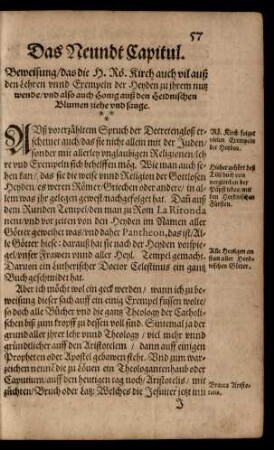 57
Das Neundt Capitul.
Beweisung/das die H. Rö. Kirch auch vil auß
den Lehren vnnd Exempeln der Heyden zu jhrem nutz
wende/vnd also auch Honig auß den Heidnischen
Blumen ziehe vnd sauge.
* * *
AVß vorerzähltem Spruch der Decretengloß er-
scheinet auch/das sie nicht allein mit der Juden/
sonder mit allerley vnglaubigen Religionen/leh-
re vnd Exempeln sich behelffen mög. Wie man auch se-
hen kan/das sie die weise vnnd Religion der Gottlosen
Heyden/es weren Römer/Griechen oder andere/in al-
lem was jhr gelegen gewest nachgefolget hat. Daß auß
dem Runden Tempel den man zu Rom La Ritonda
nent/vnd vor zeiten von den Heyden im Namen aller
Götter geweihet was/vnd daher Pantheon, das ist/Al-
le Götter hiese: darauß hat sie nach der Heyden vorspie-
gel/vnser Frawen vnnd aller Heyl. Tempel gemacht.
Daruon ein Lutherischer Doctor Celestinus ein gantz
Buch geschribt hat.
Aber ich möcht wol ein geck werden/wann ich zu be-
weisung dieser sach auff ein einig Exempel fussen wolte/
so doch alle Bücher vnd die gantz Theology der Catholi-
schen biß zum tropff zu dessen voll sind. Sintemal ja der
grund aller jhrer lehr vnnd Theology/viel mehr vnnd
gründlicher auff den Aristotelem/dann auff einigen
Propheten oder Apostel gebawen steht. Vnd zum war-
zeichen nennet die zu Löuen ein Theologanten haub oder
Caputium/auff den heutigen tag noch/Aristotelis/mit
züchten/Bruch oder Latz: Welches die Jesuiter jetzt inn
Rö. Kirch folget
vielen Exempeln
der Heyden.
Hieher gehört deß
vergleichen der
Heydnischen
Fürsten.
Alle Heyligen an
statt aller Heid-
nischen Götter.
Bruca Aristo-
telis.